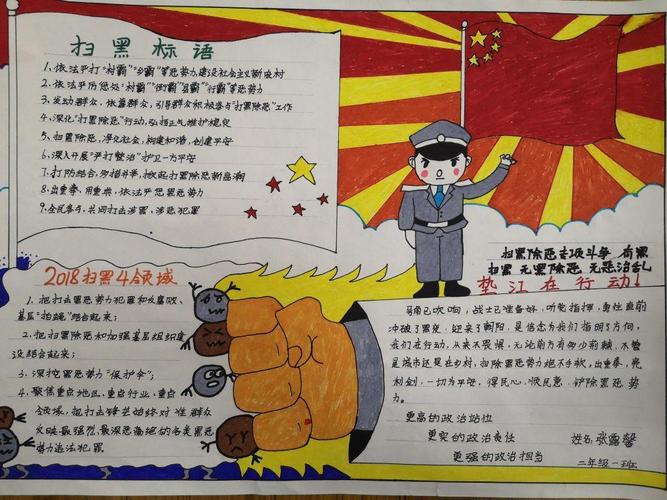 扫黑标语
1、依法严打"村霸""乡霸"等恶势力,建设社会主义新农村
2、依法严厉惩处"村霸""街霸""县霸""行霸"等恶势力
3、发动群众、依靠群众,引导群众积极参与"打黑除恶"工作
4、深化"打黑除恶"行动,弘扬正气维护稳定
5、扫黑除恶,净化社会,构建和谐,创建平安
6、深入开展"严打整治"护卫一方平安
7、打防结合,多措并举,掀起打黑除恶新高潮
8、出重拳、用重典、依法严惩黑恶势力
9、全民参与,共同打击涉黑,涉恶犯罪
2018扫黑4个领域
1、把打击黑恶势力犯罪和反腐败、
基层"拍蝇"结合起来;
2、把扫黑除恶和加强基层组织建
设结合起来;
3、深挖黑恶势力"保护伞";
4、聚焦重点地区、重点行业、重点
领域,把打击锋芒始终对准群众
反映最强烈、最深恶痛绝的各类黑恶
势力违法犯罪。
扫黑除恶专项斗争 有黑
扫黑 无黑除恶 无恶治乱
垫江在行动!
号角已吹响,战士已准备好,听党指挥,勇往直前
冲破了黑夜,迎来了朝阳,是信念为我们指明了方向,
我们在行动,从来不畏惧,无论前方有多少荆棘,不管
是城市还是在乡村,扫除黑恶势力绝不手软,出重拳,亮
利剑,一切为平安,得民心,顺民意,铲除黑恶势
力。
更高的政治站位
更实的政治责任
更强的政治担当
姓名:张露馨
二年级一班